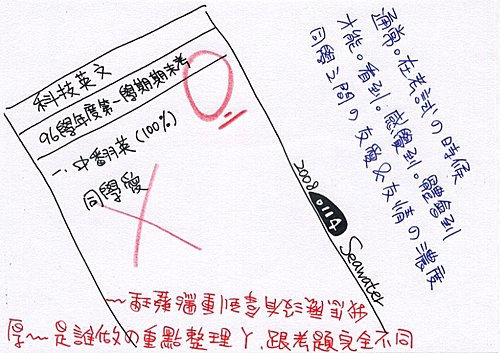 科技英文
96學年度第一學期期末考
0
一. 中翻英 (100%)
同學愛
通常。在考試の時候
才能。看到。感覺到。體會到
同學之間の友愛&友情の濃度
2008 0114 Seawater
厚～是誰做の重點整理ㄚ, 跟考題完全不同